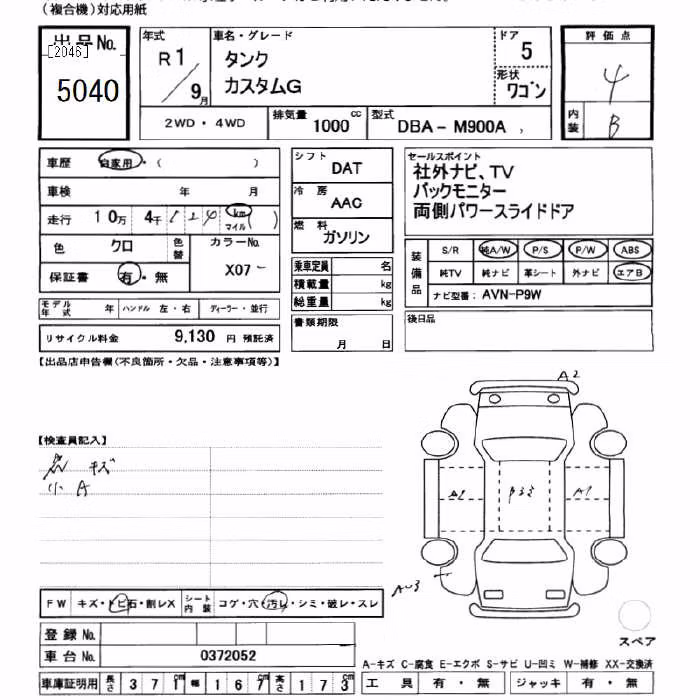 (複合機)対応用紙
出品No.
[2046]
5040
年式
R 1 / 9 月
車名・グレード
タンク
カスタムG
ドア
5
形状
ワゴン
評価点
4
内装
B
2WD・4WD
排気量 1000 cc
型式 DBA - M900A
車歴 自家用・( )
車検 年 月
走行 10万 4千 km マイル( )
色 クロ 色替
カラーNo. X07
保証書 有・無
シフト DAT
冷房 AAC
燃料 ガソリン
乗車定員 名
積載量 kg
総重量 kg
セールスポイント
社外ナビ、TV
バックモニター
両側パワースライドドア
装備品
S/R 純A/W P/S P/W ABS
純TV 純ナビ 革シート 外ナビ エアB
ナビ型番: AVN-P9W
モデル年式 年 ハンドル 左・右 ディーラー・並行
リサイクル料金 9,130 円 預託済
書類期限
月 日
後日品
【出品店申告欄(不良箇所・欠品・注意事項等)】
【検査員記入】
キズ
小 A
A2
A1
A1
A-3
FW キズ・トビ石・割レX
シート内装 コゲ・穴・汚レ・シミ・破レ・スレ
登録No.
車台No. 0372052
車庫証明用 長さ 371cm 幅 167cm 高さ 173cm
スペア
A-キズ C-腐食 E-エクボ S-サビ U-凹ミ W-補修 XX-交換済
工具 有・無 ジャッキ 有・無